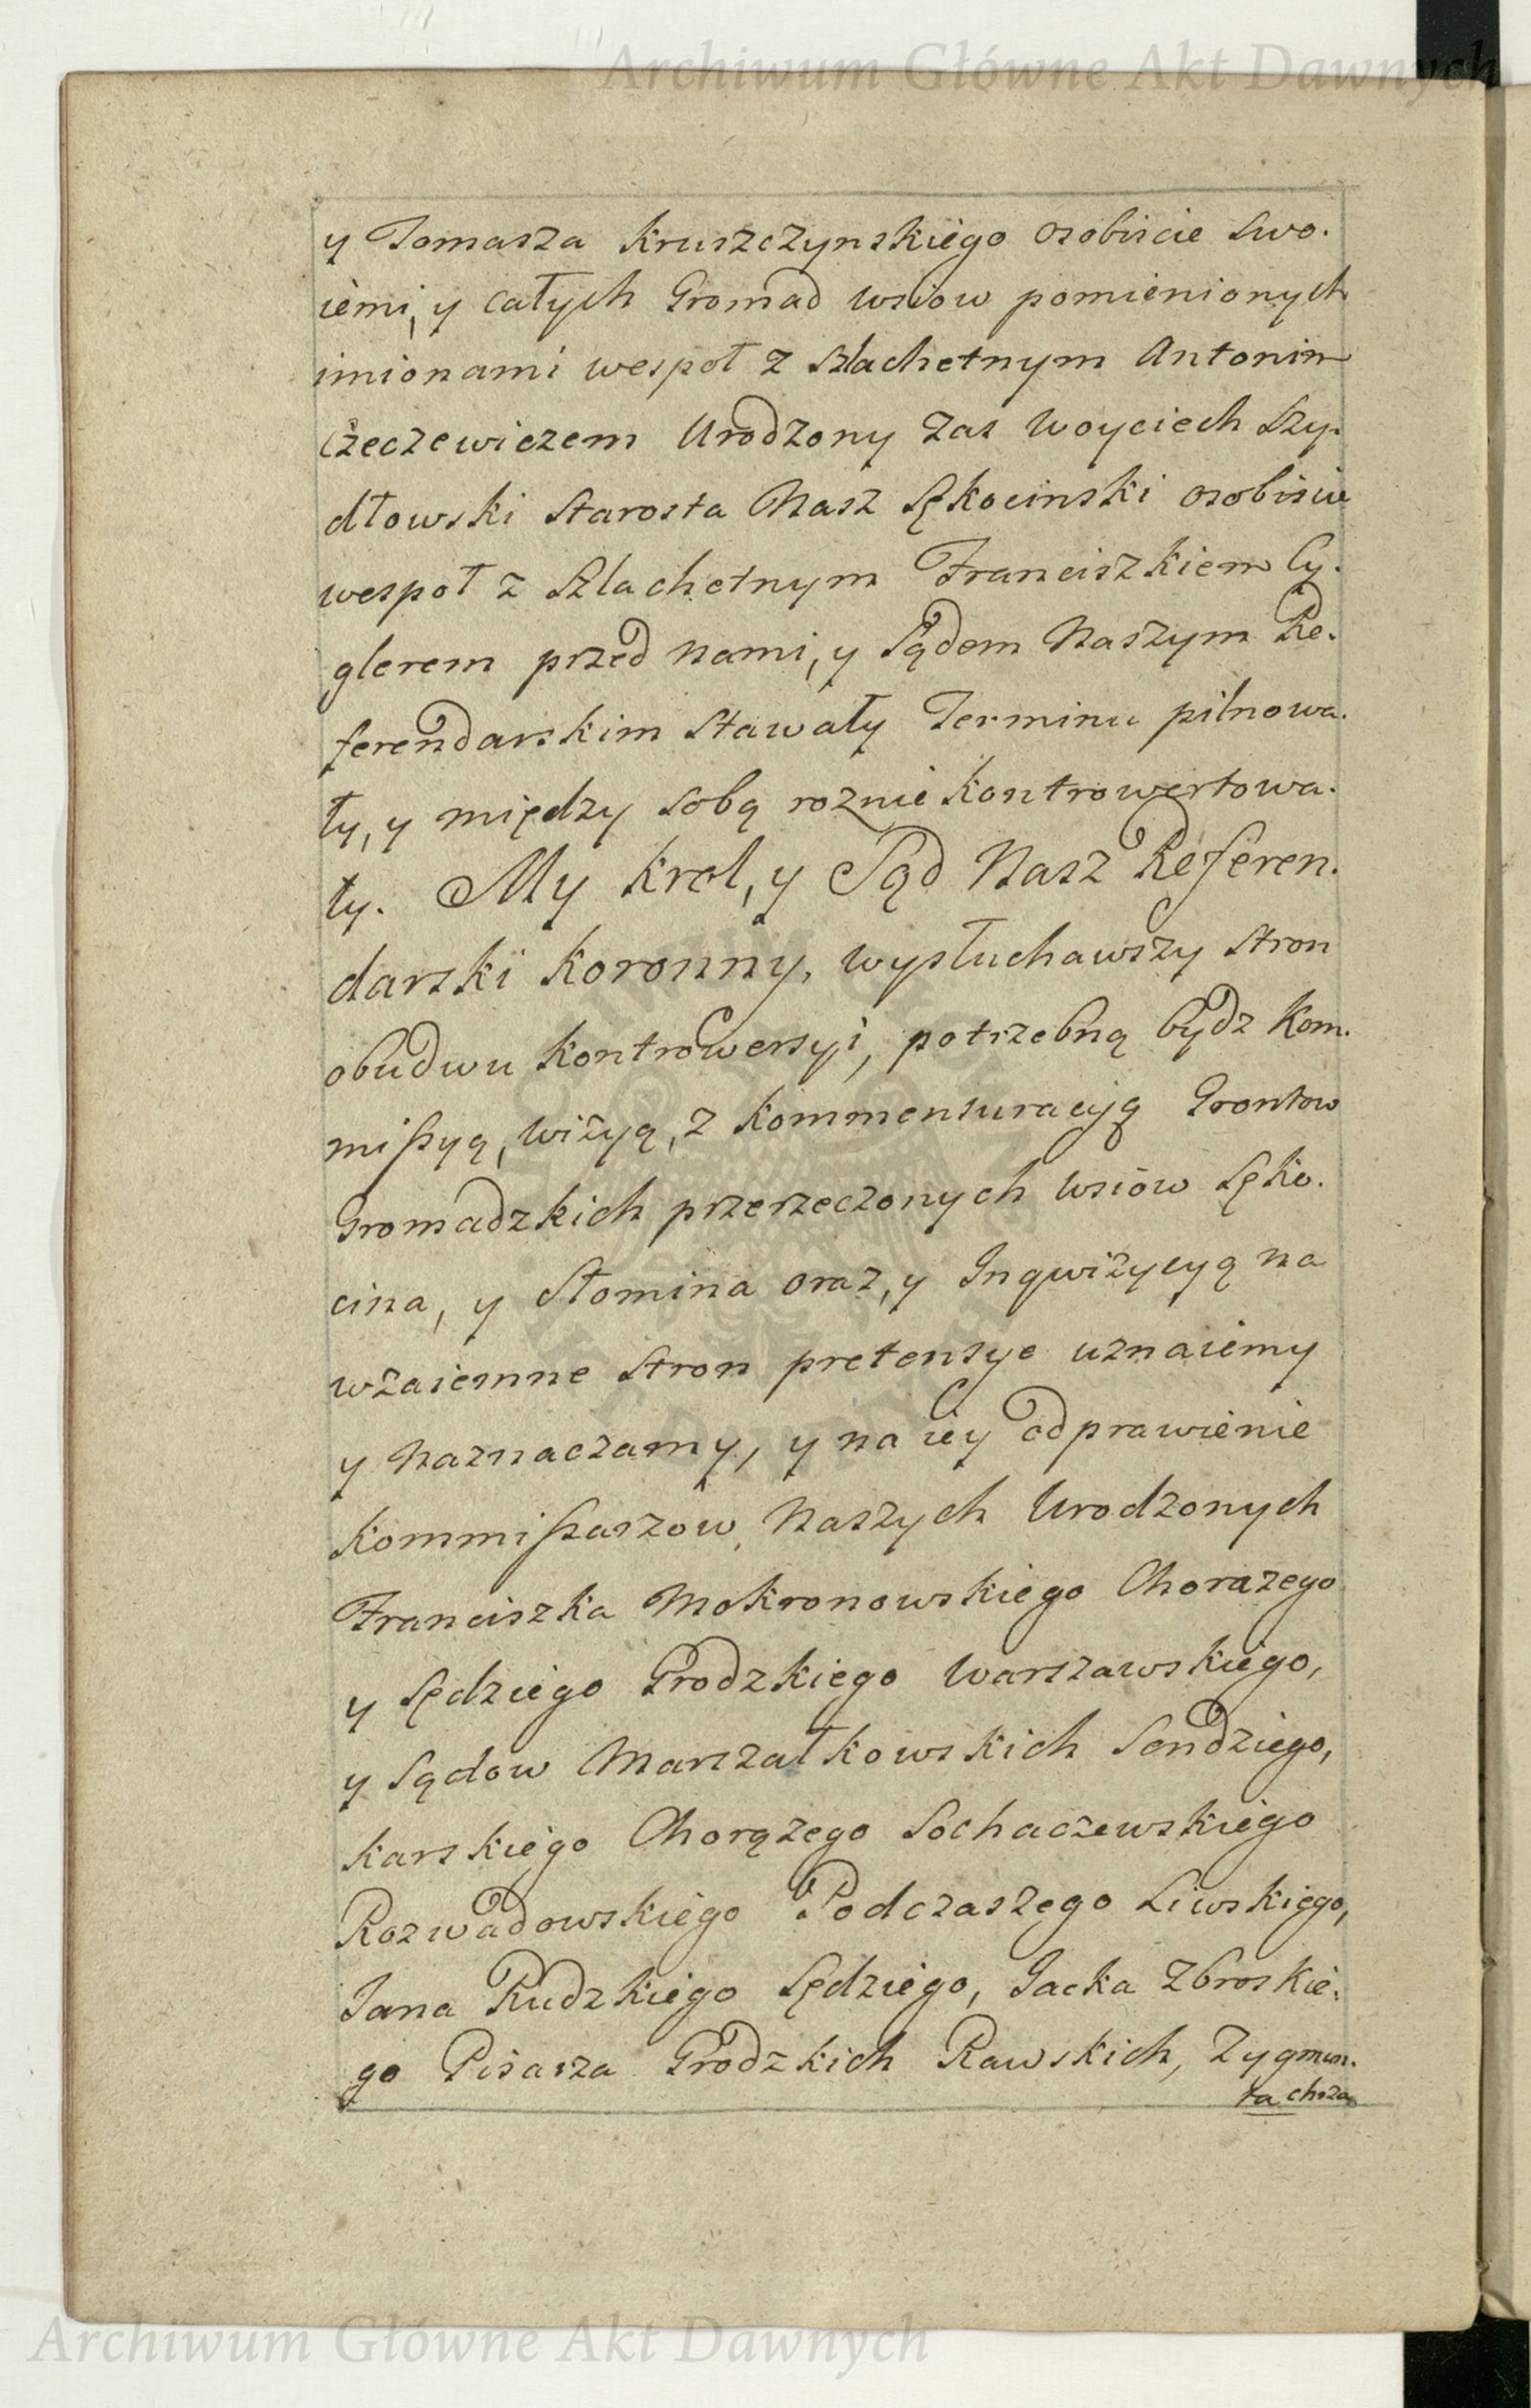 Archiwum Główne Akt Dawnych
y Tomasza Kruszczynskiego osobiscie Swo.
iemi, y całych Gromad wsiow pomienionych
imionami wespoł z Szlachetnym Antonim
Czeczewiczem Urodzony Zas Woyciech Szy.
dłowski Starosta Nasz Sękocinski osobiscie
wespoł z Szlachetnym Franciszkiem Cy.
glerem przed nami, y Sądem Naszym Re.
ferendarskim Stawały Terminu pilnowa.
ły, y między sobą roznie kontrowertowa.
ły. My Krol, y Sąd Nasz Referen.
darski Koronny, wysłuchawszy Stron
obudwu Kontrowersyi, potrzebną bydz Kom.
mißyą, wizyą, z Kommensuracyą Grontow
Gromadzkich przerzeczonych wsiow Sęko.
cina, y Słomina oraz, y Inqwizycyą na
wzaiemne Stron pretensye uznaiemy
y Naznaczamy, y na iey odprawienie
Kommißarzow Naszych Urodzonych
Franciszka Mokronowskiego Chorazego
y Sędziego Grodzkiego Warszawskiego,
y Sądow Marszałkowskich Sendziego,
karskiego Chorążego Sochaczewskiego
Rozwadowskiego Podczaszego Liwskiego,
Jana Rudzkiego Sędziego, Jacka Zbroskie.
go Pisarza Grodzkich Rawskich, Zygmun.
ta
Archiwum Główne Akt Dawnych